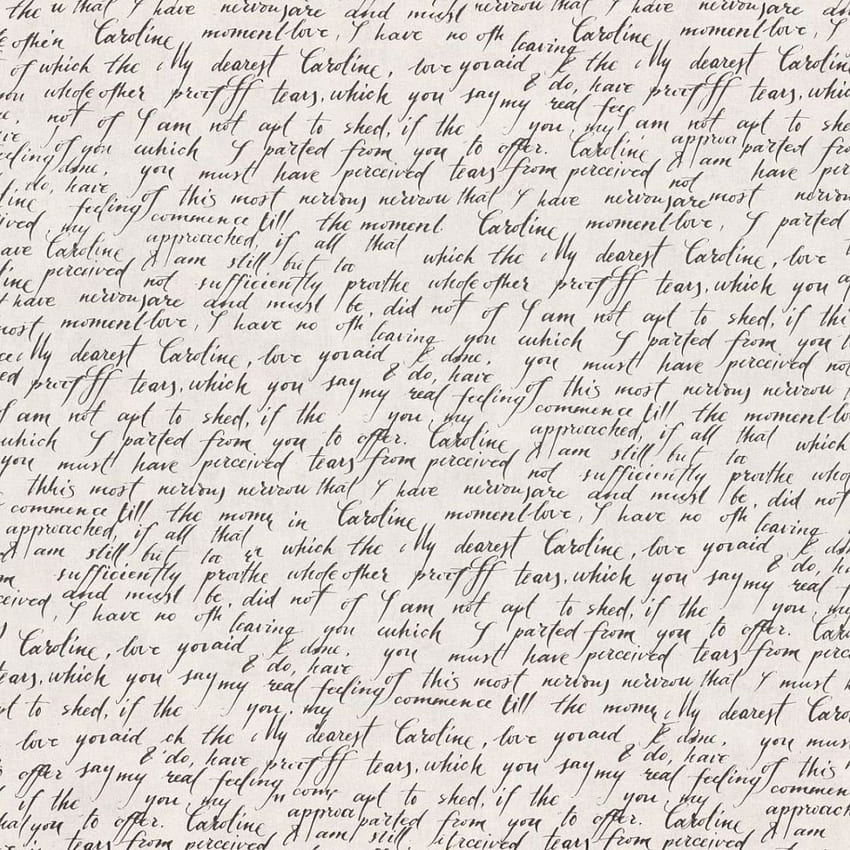 the u that I have nervousare and must nervrou that I have nervousare and
othe'n Caroline, moment love, I have no oth leaving Caroline, moment love, I
of which the My dearest Caroline, love yoraid & the My dearest Caroline
you whole other proofff tears, which you say my real fee & do, have proofff tears, which
not of I am not apt to shed, if the you, my I am not apt to she
feeling of you cuhich I parted from you to offer. Caroline approa parted fro
do, have done, you must have perceived tears from perceived I am not have per
feeling of this most nervous nervrou that I have nervousare most nervou
my commence till the moment. Caroline moment love, I parted
ave Caroline approached, if all that which the My dearest Caroline, love
perceived I am still but to
ine not sufficiently proothe whole other proofff tears, which you
have nervousare and must be, did not of I am not apt to shed, if thi
most moment love, I have no oth leaving you cuhich I parted from you
My dearest Caroline, love yoraid & done, you must have perceived not
ed proofff tears, which you say & do, have my real feeling of this most nervous nervrou
I am not apt to shed, if the you, my commence till the moment lo
which I parted from you to offer. Caroline approached, if all that which
you must have perceived tears from perceived I am still but to
not sufficiently proothe whole
thhis most nervous nervrou that I have nervousare and must be, did not
commence till the mome in Caroline, moment love, I have no oth leaving
approached, if all that which the My dearest Caroline, love yoraid &
I am still but to
sufficiently proothe whole other proofff tears, which you say my real & do, have
ceived and must be, did not of I am not apt to shed, if the you, my
I have no oth leaving you cuhich I parted from you to offer. Car
Caroline, love yoraid & done, you must have perceived tears from perc
ears, which you say my real feeling & do, have of this most nervous nervrou that I must
pt to shed, if the you, my commence till the mome My dearest Caro
love yoraid ch the My dearest Caroline, love yoraid & done, you mus
offer say my real feeling & do, have proofff tears, which you say my real feeling & do, have of this
if the you, my come apt to shed, if the you, my commen
you to offer. Caroline approa parted from you to offer. Caroline approach
tears from perceived I am still perceived tears from perceived I am